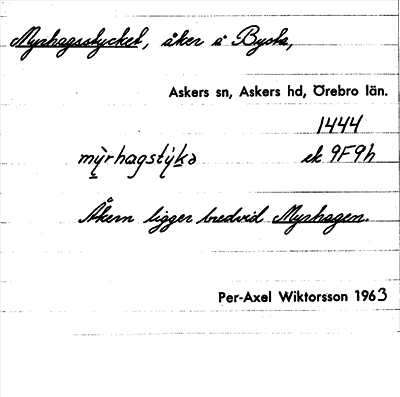 Myrhagsstycket, åker å Bysta,
Askers sn, Askers hd, Örebro län.
1444
mỳrhagstýkə ek 9F9h
Åkern ligger bredvid Myrhagen.
Per-Axel Wiktorsson 1963